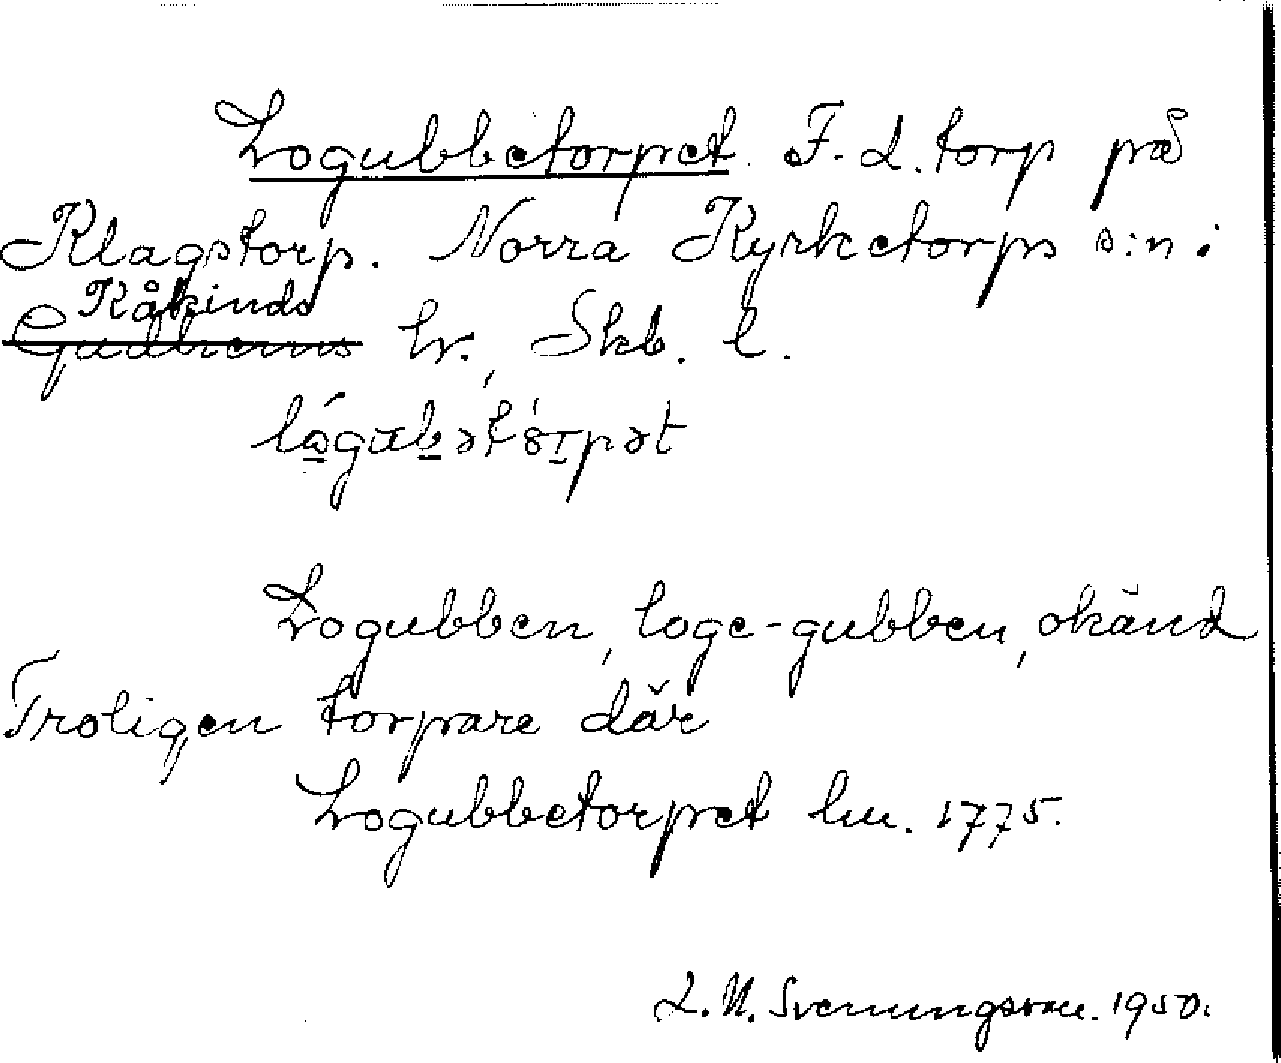 Logubbetorpet. F. d. torp på
Klagstorp. Norra Kyrketorps s:n i
Kåkinds
Gudhems hr., Skb. l.
Logubben, loge-gubben, okänd
Troligen torpare där
Logubbetorpet hu. 1775.
L. M. Svenungsson. 1950.